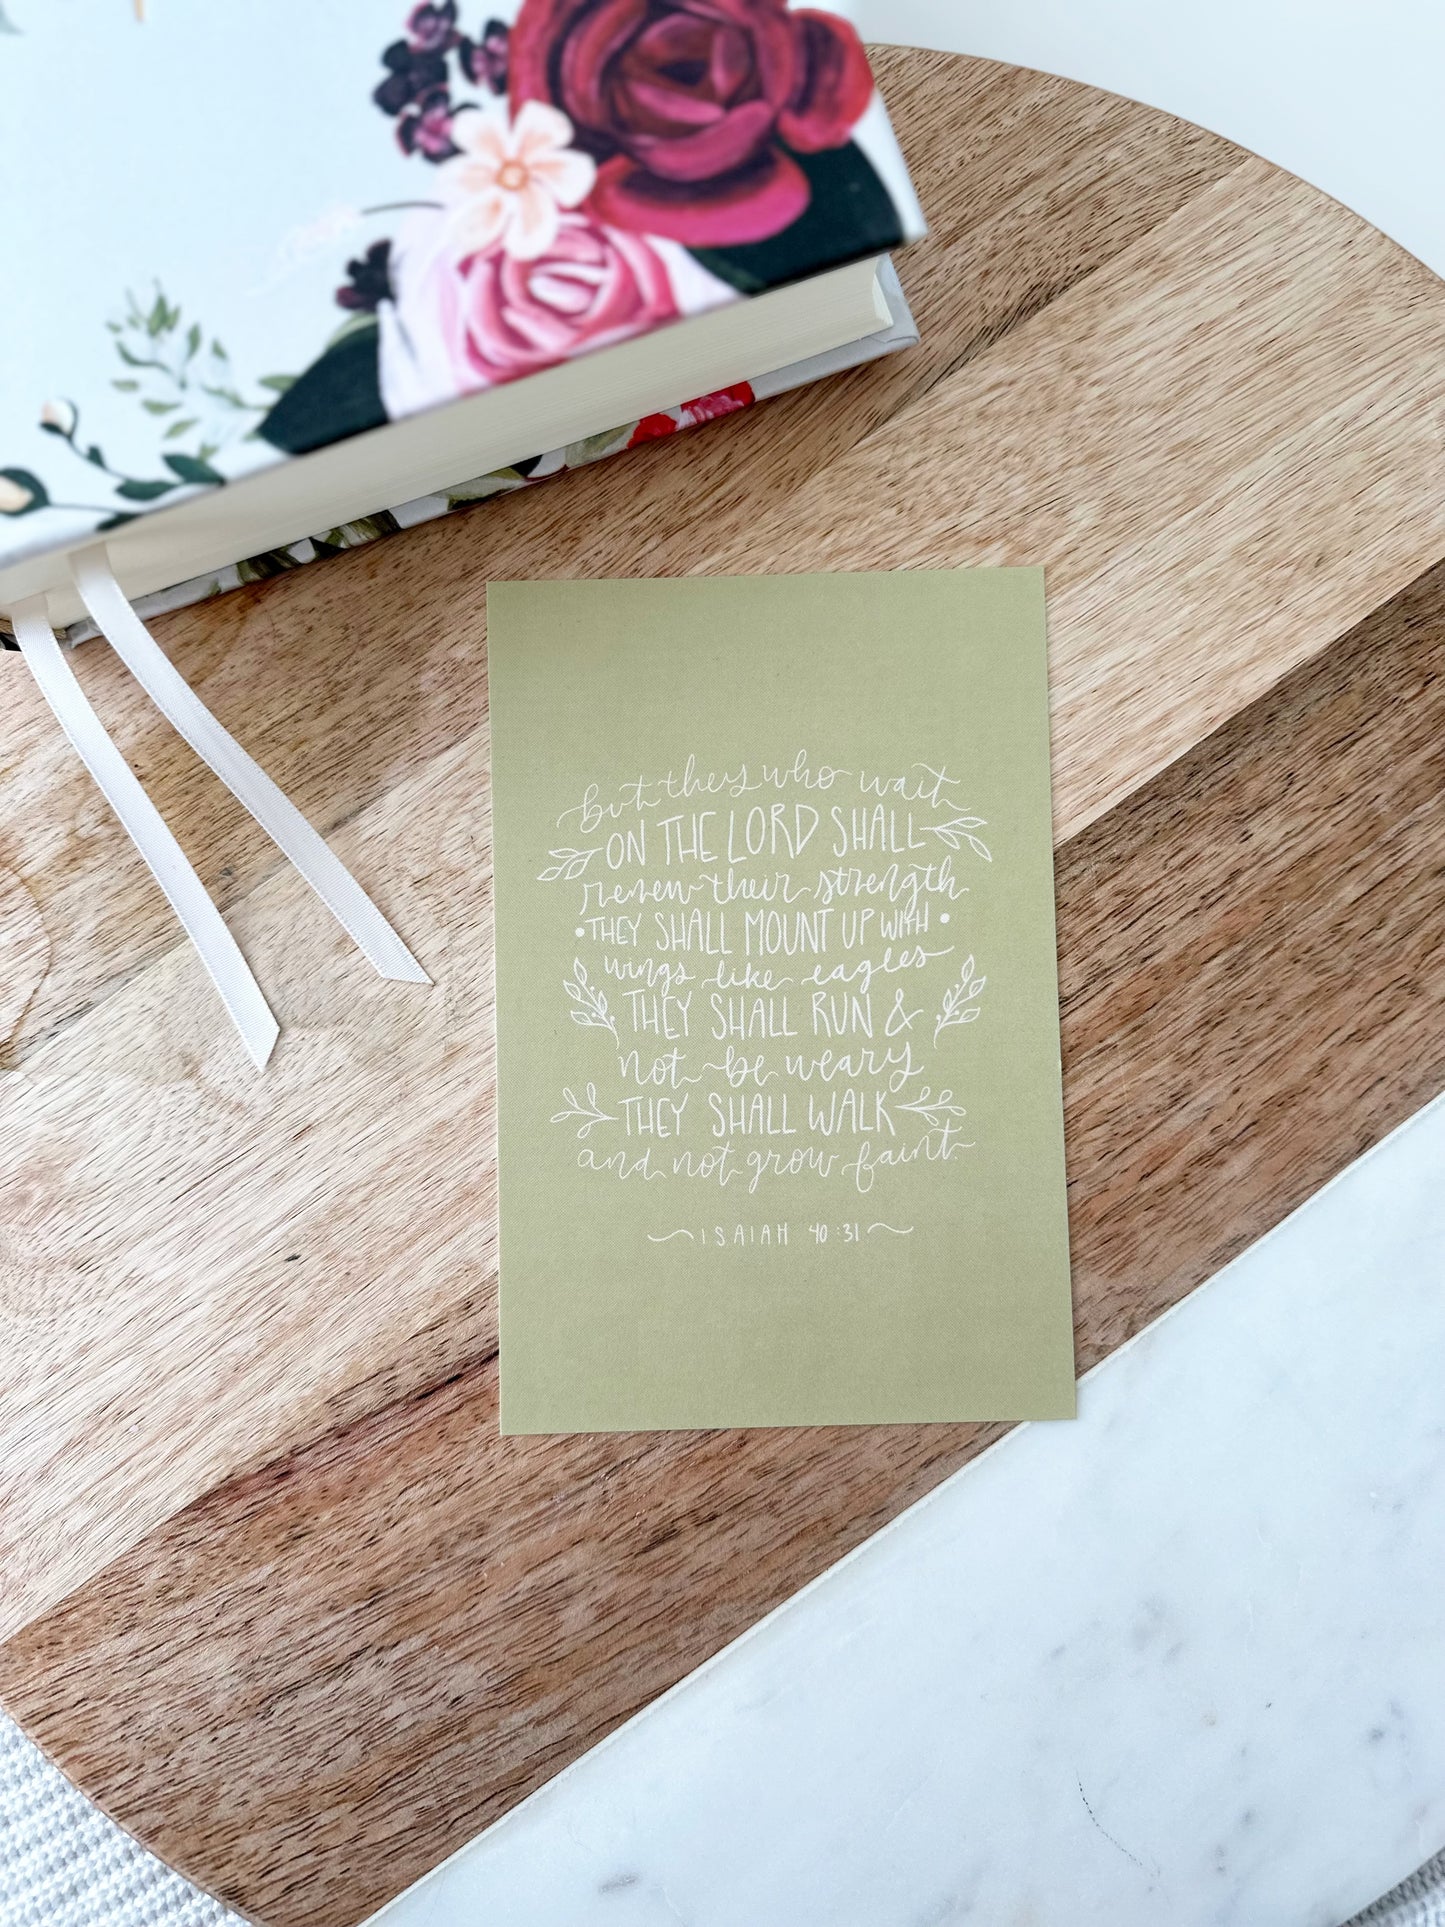 but they who wait
ON THE LORD SHALL
renew their strength
• THEY SHALL MOUNT UP WITH •
wings like eagles
THEY SHALL RUN &
not be weary
THEY SHALL WALK
and not grow faint
ISAIAH 40:31